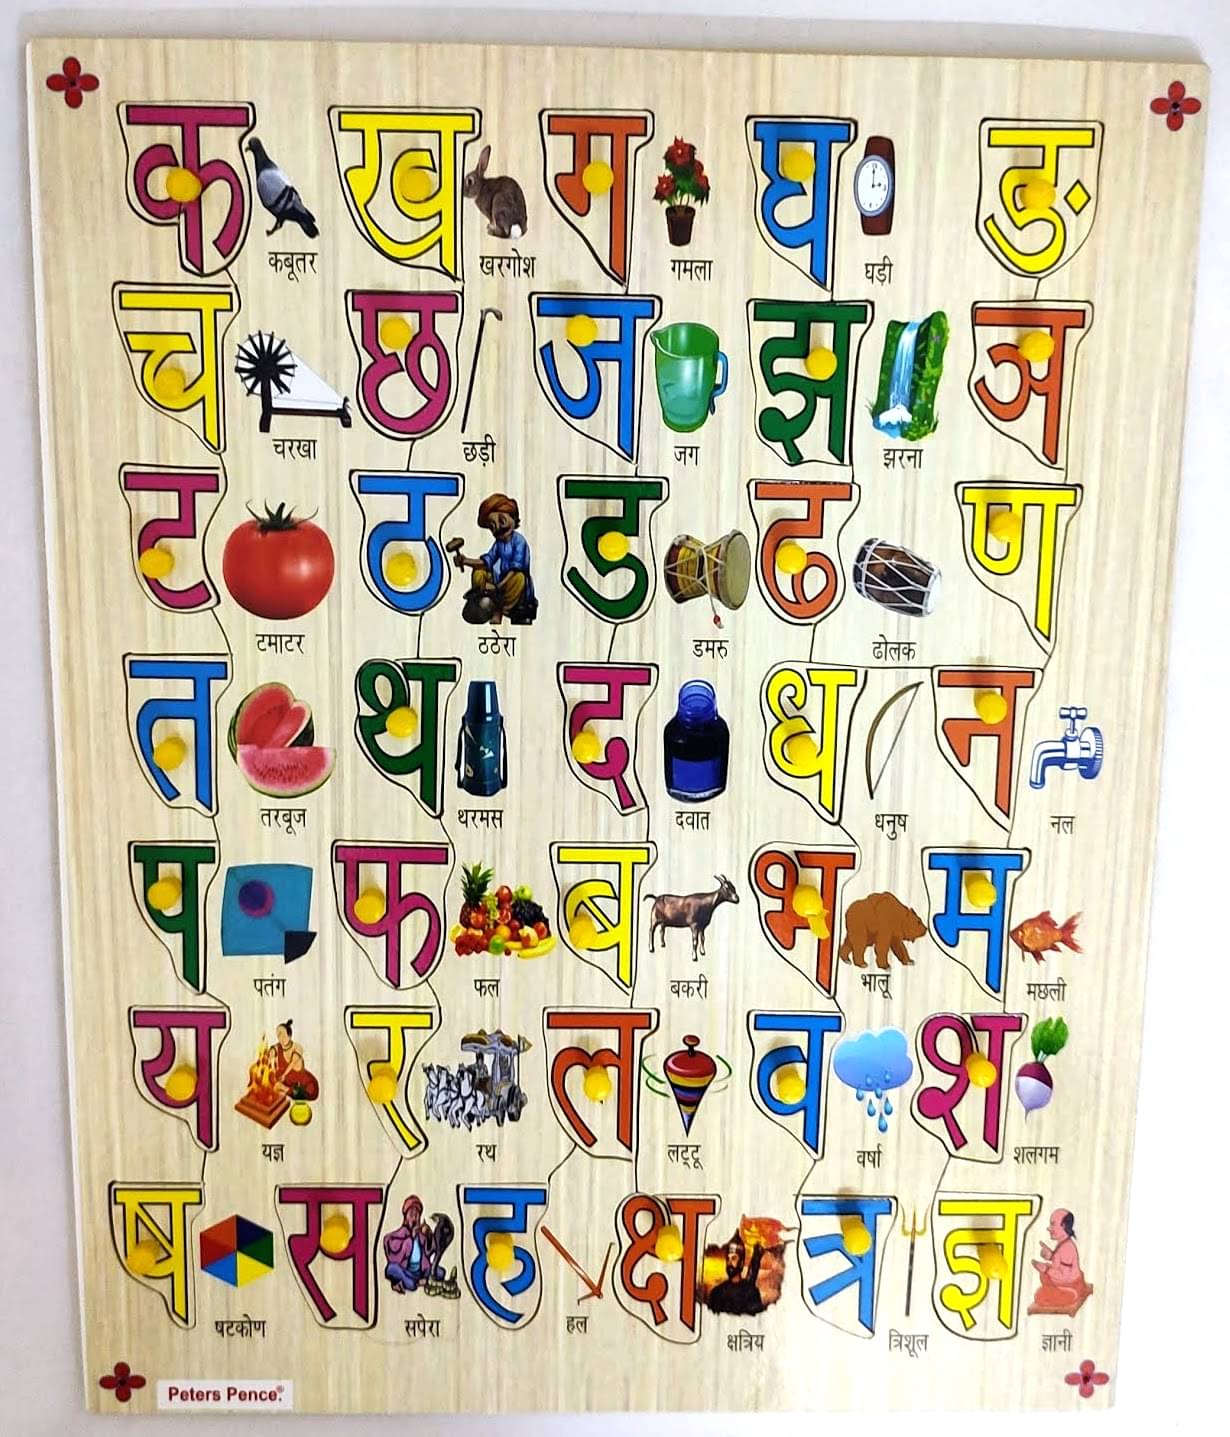 क ख ग घ ङ
कबूतर खरगोश गमला घड़ी
च छ ज झ ञ
चरखा छड़ी जग झरना
ट ठ ड ढ ण
टमाटर ठठेरा डमरु ढोलक
त थ द ध न
तरबूज थरमस दवात धनुष नल
प फ ब भ म
पतंग फल बकरी भालू मछली
य र ल व श
यज्ञ रथ लट्टू वर्षा शलगम
ष स ह क्ष त्र ज्ञ
षटकोण सपेरा हल क्षत्रिय त्रिशूल ज्ञानी
Peters Pence®